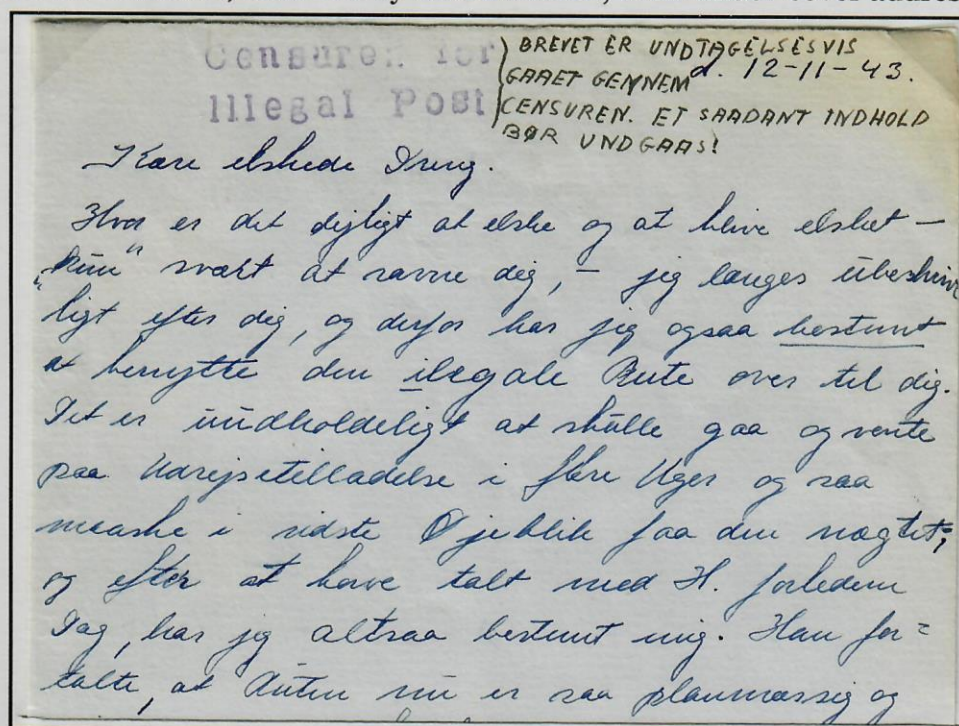 Censuren for
Illegal Post
BREVET ER UNDTAGELSESVIS
GAAET GENNEM
CENSUREN. ET SAADANT INDHOLD
BØR UNDGAAS!
d. 12-11-43.
Kære elskede Dreng.
Hvor er det dejligt at elske og at blive elsket –
"kun" svært at savne dig, – jeg længes ubeskrive
ligt efter dig, og derfor har jeg ogsaa bestemt
at benytte den illegale Rute over til dig.
Det er uudholdeligt at skulle gaa og vente
paa Udrejsetilladelse i flere Uger og saa
maaske i sidste Øjeblik faa den nægtet;
og efter at have talt med H. forleden
Dag, har jeg altsaa bestemt mig. Han for=
talte, at Ruten nu er saa planmæssig og